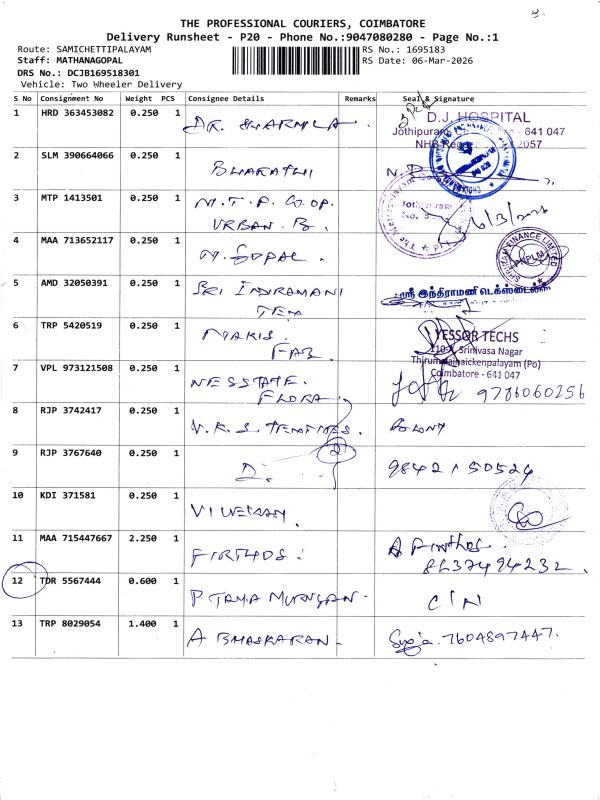 THE PROFESSIONAL COURIERS, COIMBATORE
Delivery Runsheet - P20 - Phone No.:9047080280 - Page No.:1
Route: SAMICHETTIPALAYAM RS No.: 1695183
Staff: MATHANAGOPAL RS Date: 06-Mar-2026
DRS No.: DCJB169518301
Vehicle: Two Wheeler Delivery
S No Consignment No Weight PCS Consignee Details Remarks Seal & Signature
1 HRD 363453082 0.250 1 DR. SHARMILA D.J. HOSPITAL
Jothipuram - 641 047
2057
2 SLM 390664066 0.250 1 BHARATHI
3 MTP 1413501 0.250 1 M.T.P. CO.OP. Jothipuram 6/3/2026
URBAN. B.
4 MAA 713652117 0.250 1 M. GOPAL. SUPRIYAM FINANCE LIMITED
5 AMD 32050391 0.250 1 SRI INDRAMANI ஸ்ரீ இந்திராமணி டெக்ஸ்டைல்ஸ்
TEX
6 TRP 5420519 0.250 1 NAKIS. YESSOR TECHS
FAB. Srinivasa Nagar
Thirumalainaickenpalayam (Po)
Coimbatore - 641 047
7 VPL 973121508 0.250 1 NESSTATE. 9786060256
FLORA.
8 RJP 3742417 0.250 1 V.K.S. TEXTILES.
9 RJP 3767640 0.250 1 2. 2 9842150524
10 KDI 371581 0.250 1
11 MAA 715447667 2.250 1 8637494232.
12 TDR 5567444 0.600 1 P TAMA MURUGAN
13 TRP 8029054 1.400 1 A BHASKARAN Suja 7604897447.